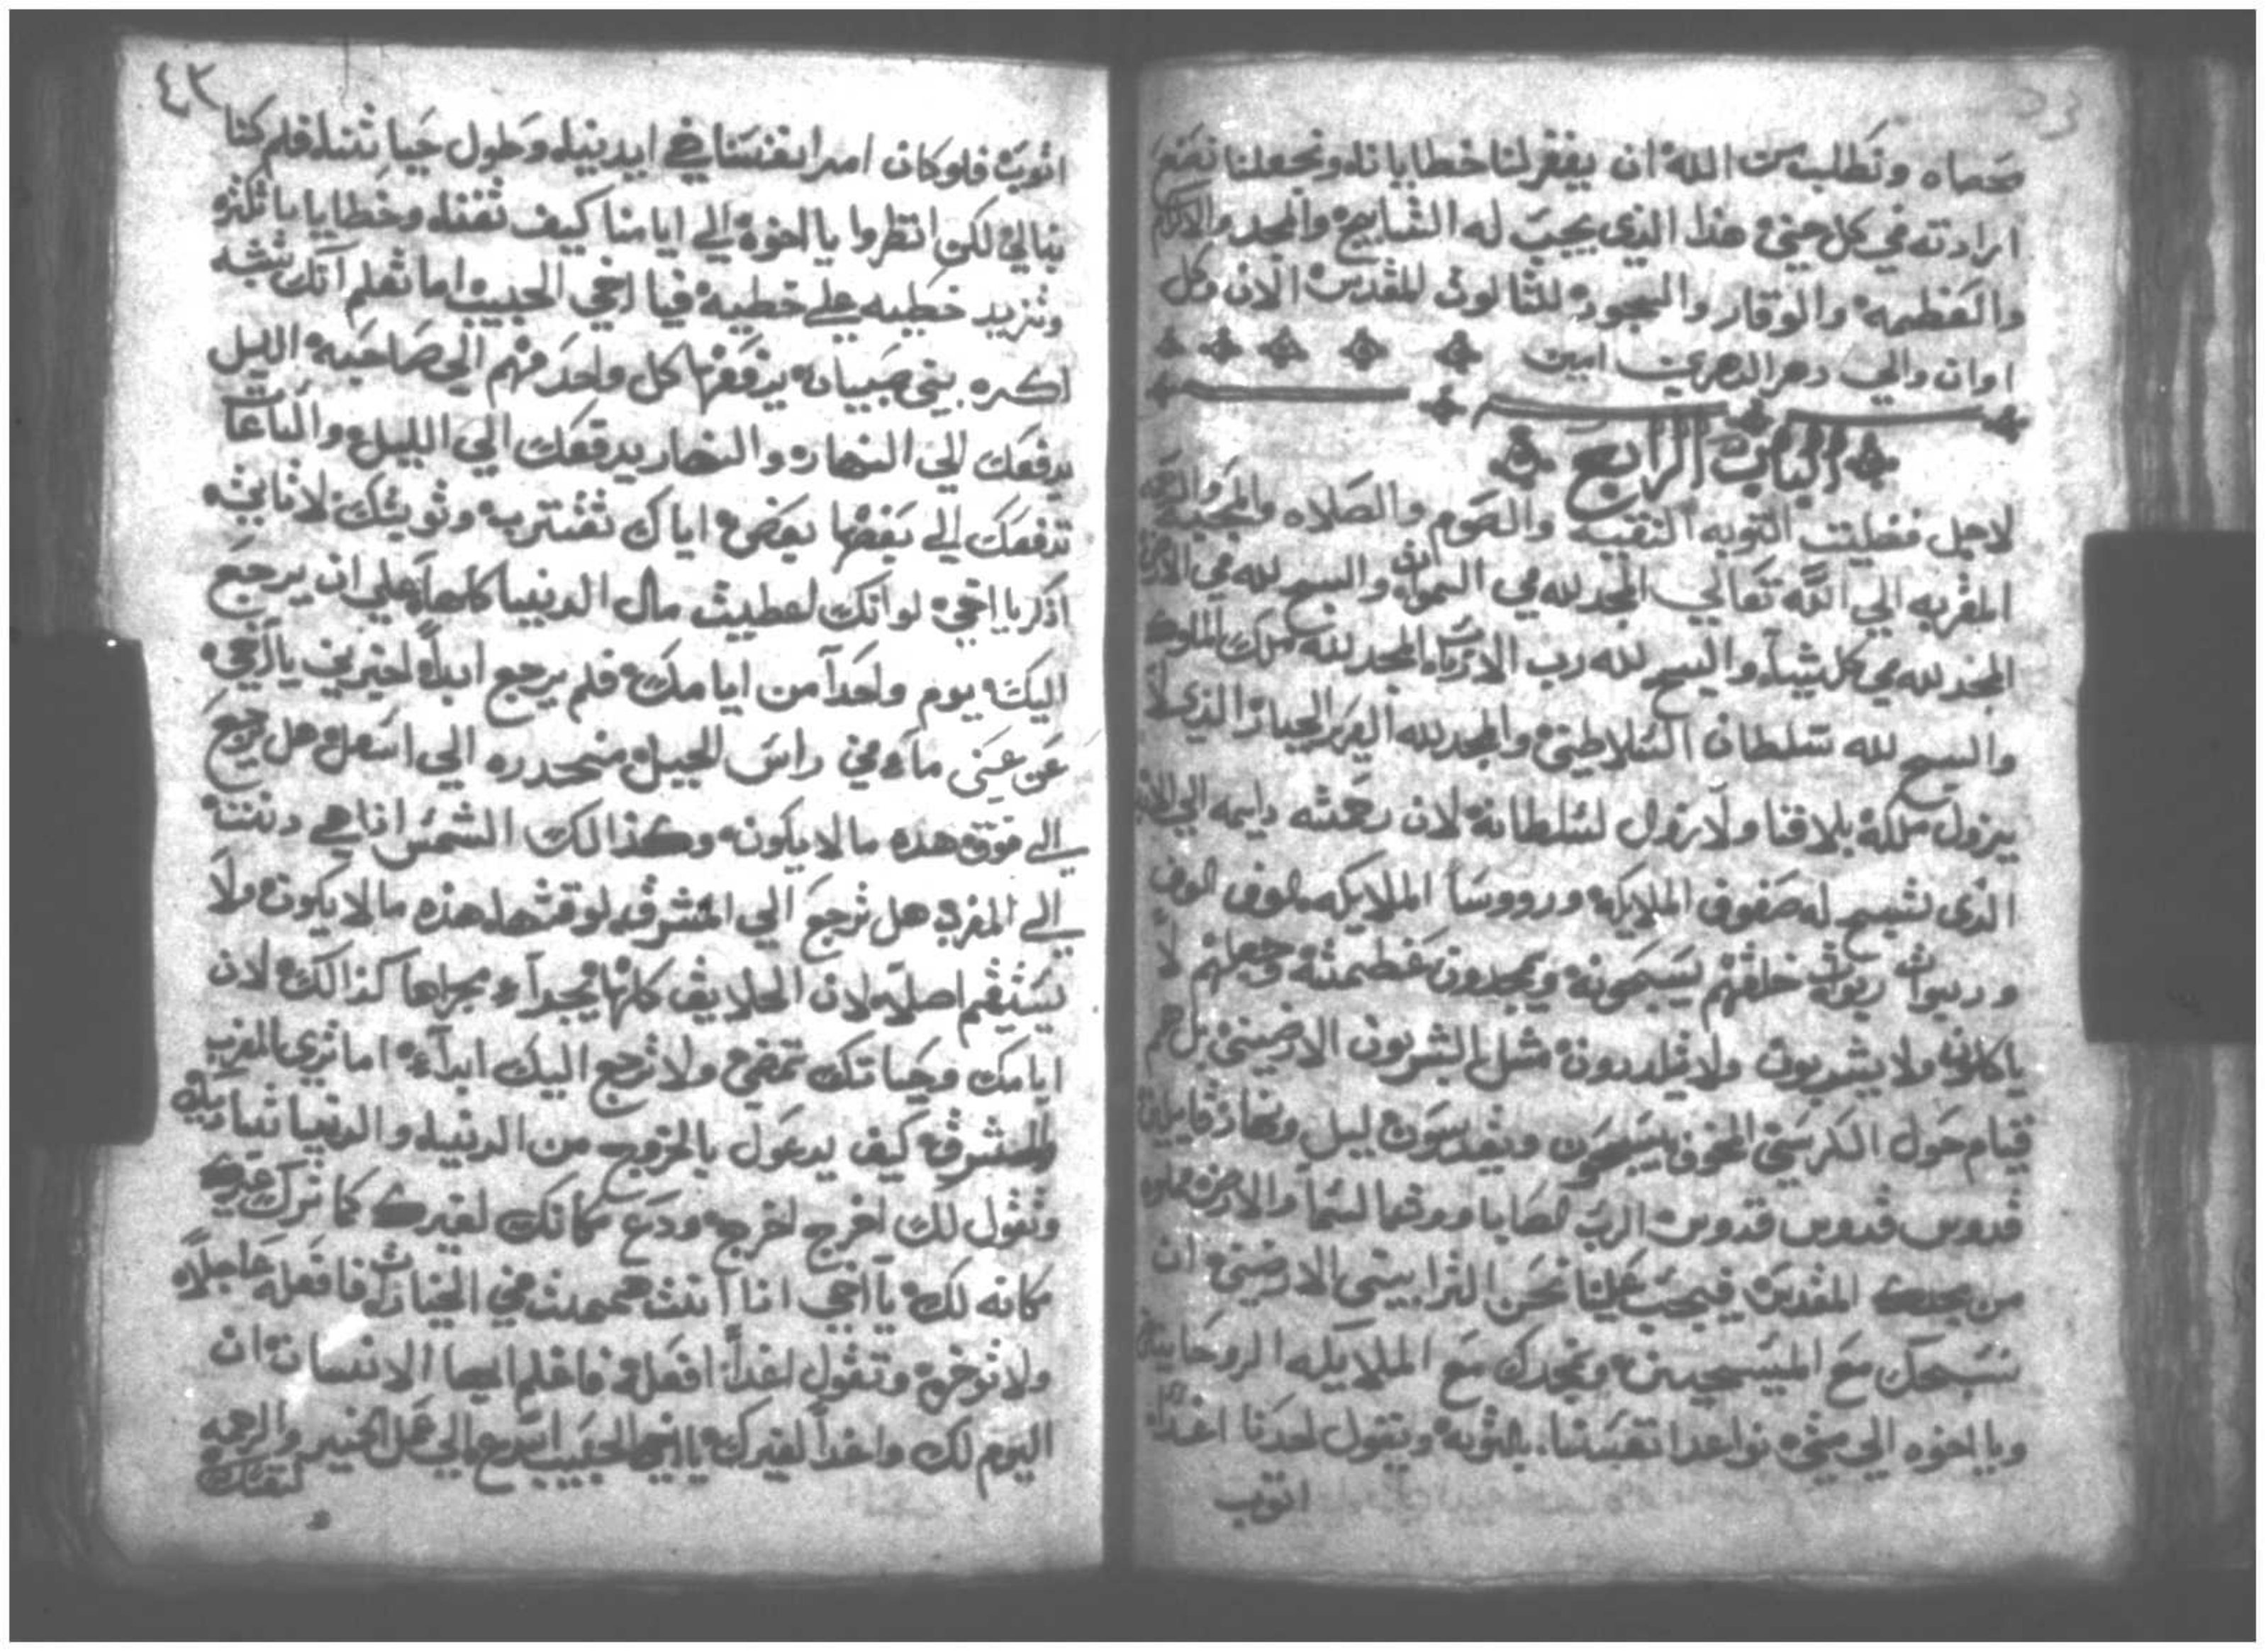 سحماه ونطلب من الله ان يغفر لنا خطايانا ونجعلنا نصنع
ارادته في كل حين هذا الذي يجب له التسابيح والمجد والاكرام
والعظمه والوقار والسجود للثالوث المقدس الان وكل
اوان والي دهر الداهرين امين
الباب الرابع
لاجل فضليت التوبه النقيه والصوم والصلاه والمحبه
المقربه الي الله تعالي المجد لله في السموات والسبح لله في الارض
المجد لله في كل شيآ والسبح لله رب الارباب المجد لله ملك الملوك
والسبح لله سلطان السلاطين والمجد لله العزيز الجبار الذي لا
يزول ملكه بلا فنا ولا زول لسلطانه لان رحمته دايمه الي الابد
الذي تسبح له صفوف الملايكه ورووسا الملايكه الوف الوف
وربوات ربوات خلقهم يسبحونه ويمجدون عظمته وجعلهم لا
ياكلون ولا يشربون ولا يلدون مثل البشريون الارضيين بل هم
قيام حول الكرسي المخوف يسبحون ويقدسون ليل ونهار قايلين
قدوس قدوس قدوس الرب الصاباووت السما والارض مملوه
من مجدك المقدس فيجب علينا نحن الترابيين الارضين ان
نسبحك مع المسبحين ونمجدك مع الملايكه الروحانيين
ويا اخوه الي متي نواعد انفسنا بالتوبه ونقول لحدنا اغدا
اتوب
٤٣
اتوب فلوكان امر انفسنا في ايدينا وطول حياتنا فلم كنا
نبالي لكن انظروا يا اخوه الي ايامنا كيف تفنا وخطايانا تكثر
وتزيد خطيه علي خطيه فيا اخي الحبيب اما تعلم انك تشبه
اكره بين صبيان يدفعها كل واحد منهم الي صاحبه الليل
يدفعك الي النهار والنهار يدفعك الي الليل والساعات
تدفعك الي بعضها بعض اياك تقترب وتوبتك لا تابت
اذكر يا اخي لو انك اعطيت مال الدنيا كلها علي ان يرجع
اليك يوم واحدآ من ايامك فلم يرجع ابدآ اخبرني يا اخي
عن عين مآء في راس الجبل منحدره الي اسفل هل ترجع
الي فوق هذه ما لا يكون وكذالك الشمس اذا هي دنت
الي المغرب هل ترجع الي المشرق لوقتها هذه ما لا يكون ولا
يستقيم اصلا لان الخلايق كلها تجري مجراها كذالك لان
ايامك وحياتك تمضي ولا ترجع اليك ابدآ اما تري المغرب
والمشرق كيف يدعوك بالخروج من الدنيا والدنيا تناديك
وتقول لك اخرج اخرج ودع مكانك لغيرك كما ترك غيرك
مكانه لك يا اخي اذا انت هممت في الخيرات فافعله عاجلآ
ولا توخره وتقول اغدآ افعل فاعلم ايها الانسان ان
اليوم لك واغدآ لغيرك يا ايها الحبيب اسرع الي عمل الخير والرحمه